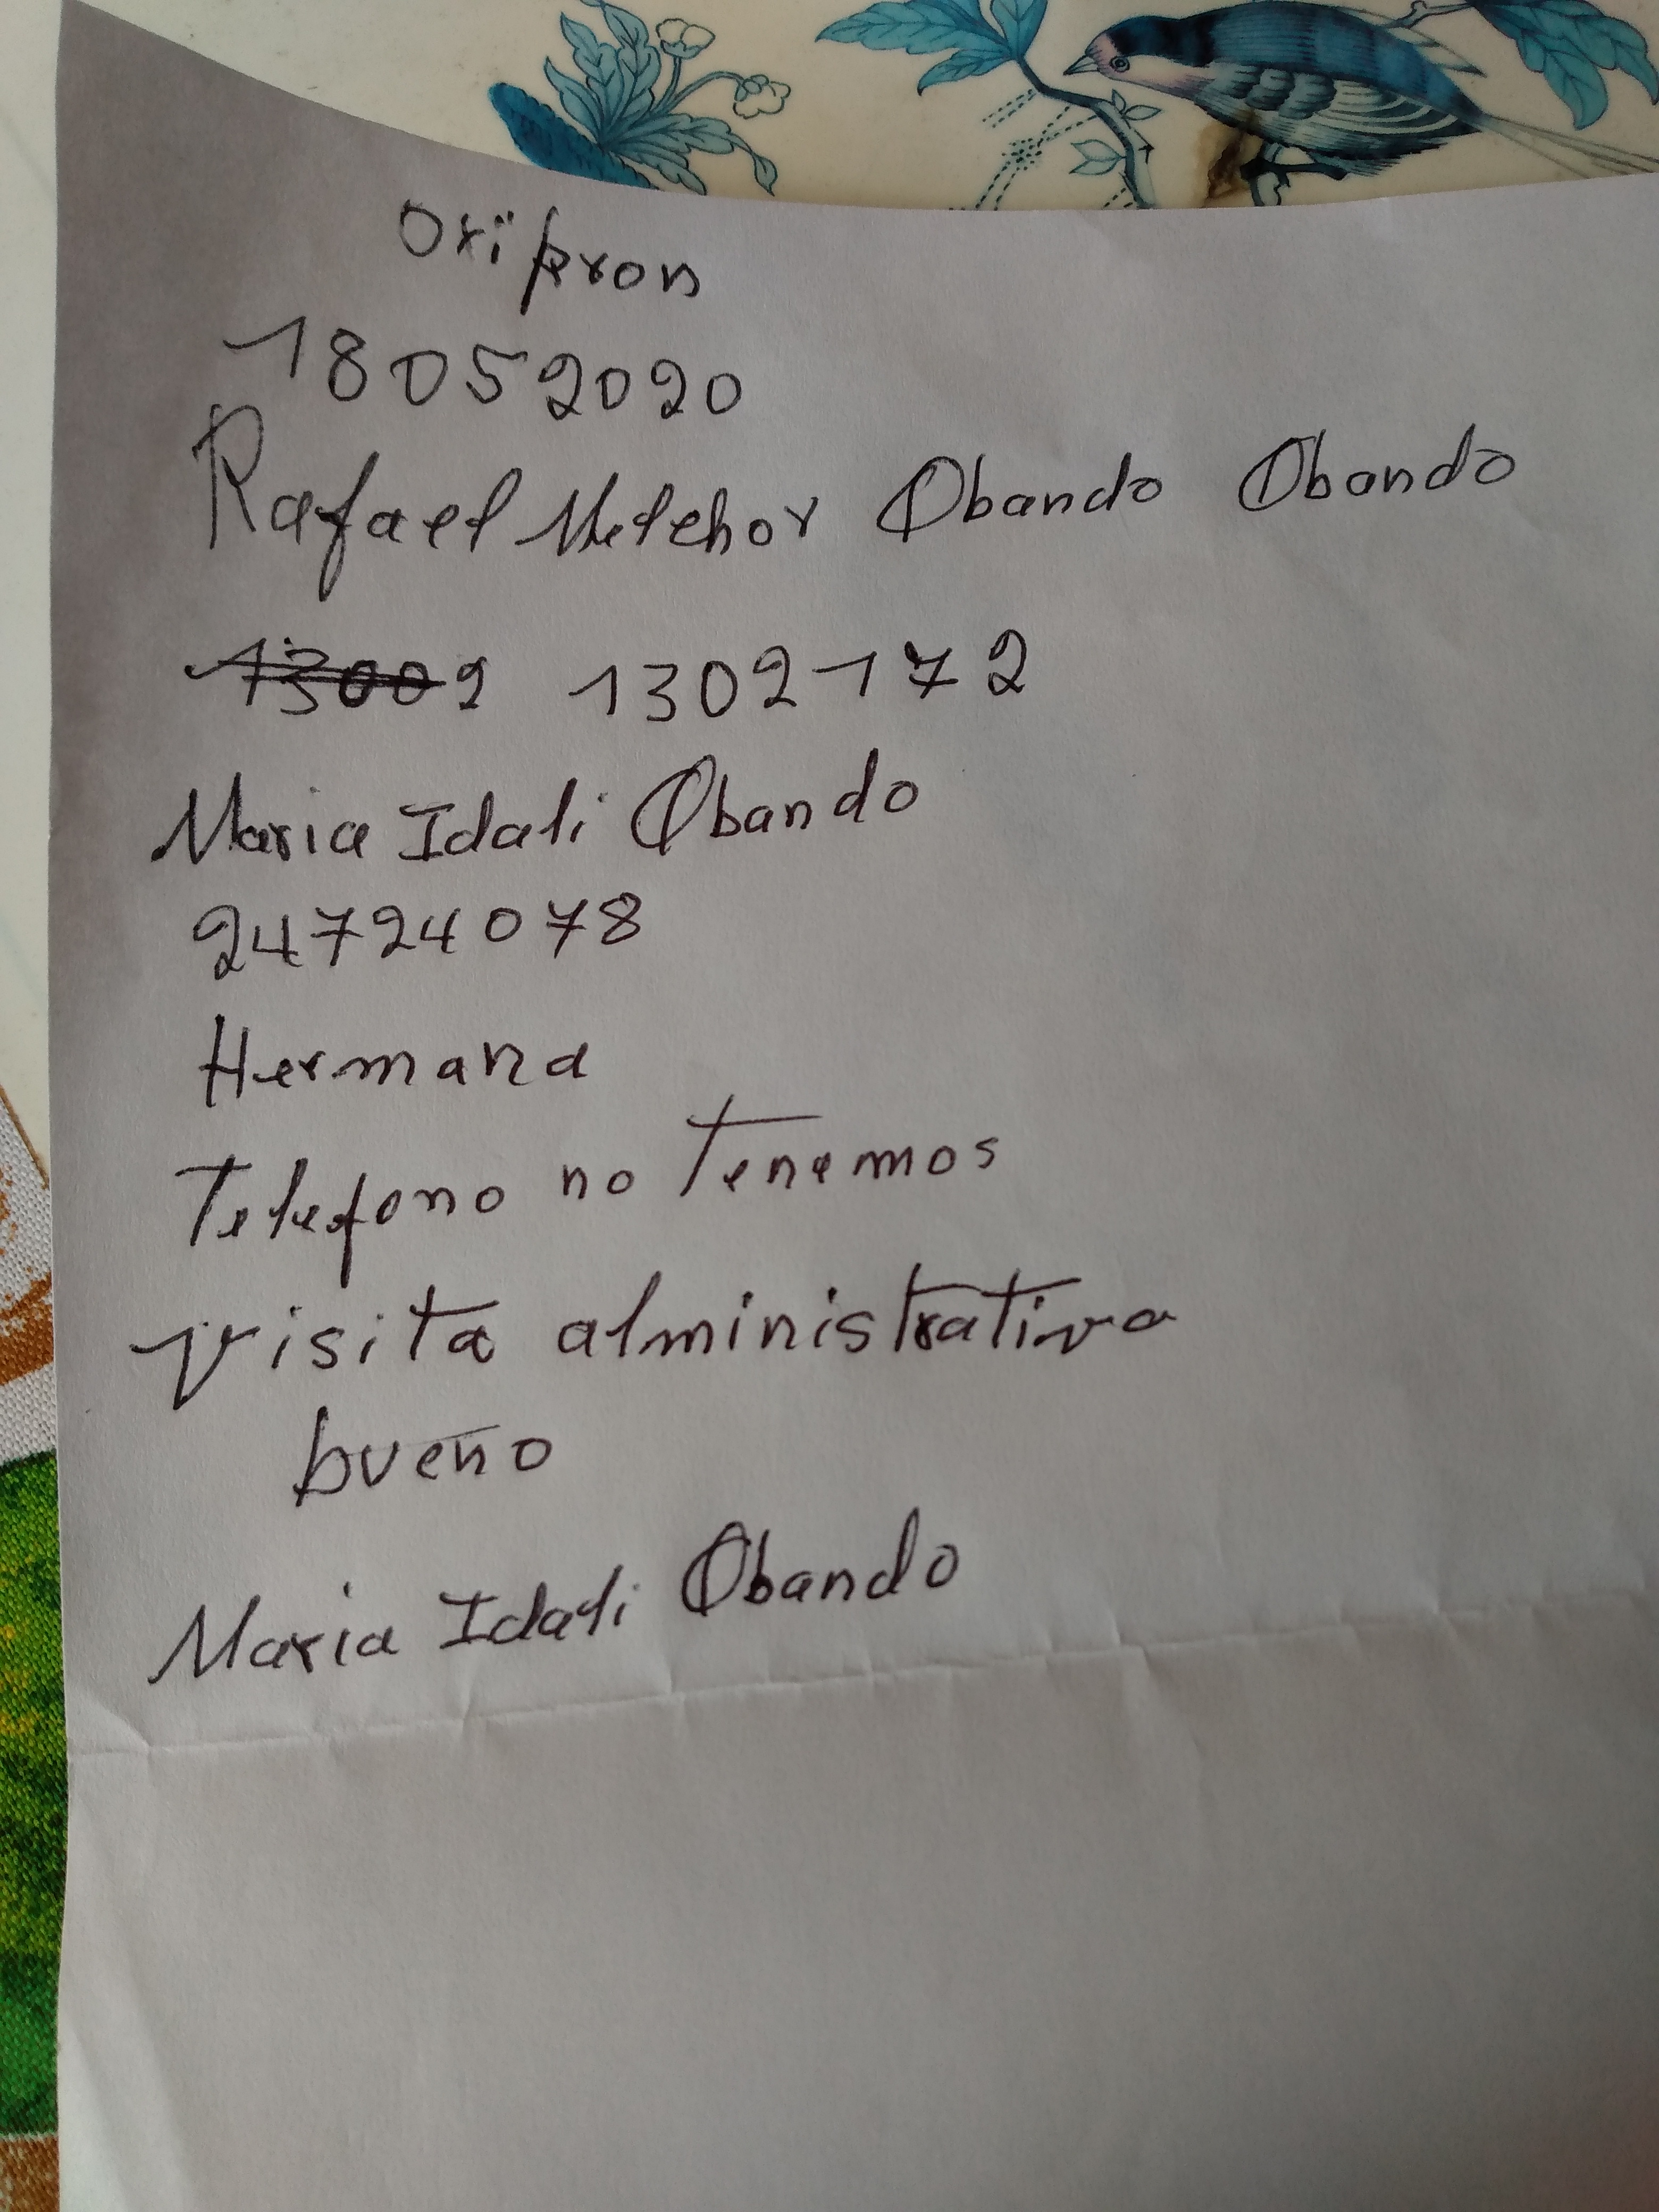 Oxipron
18052020
Rafael Melchor Obando Obando
13002 1302172
Maria Idali Obando
24724078
Hermana
Telefono no Tenemos
visita alministrativa
bueno
Maria Idali Obando